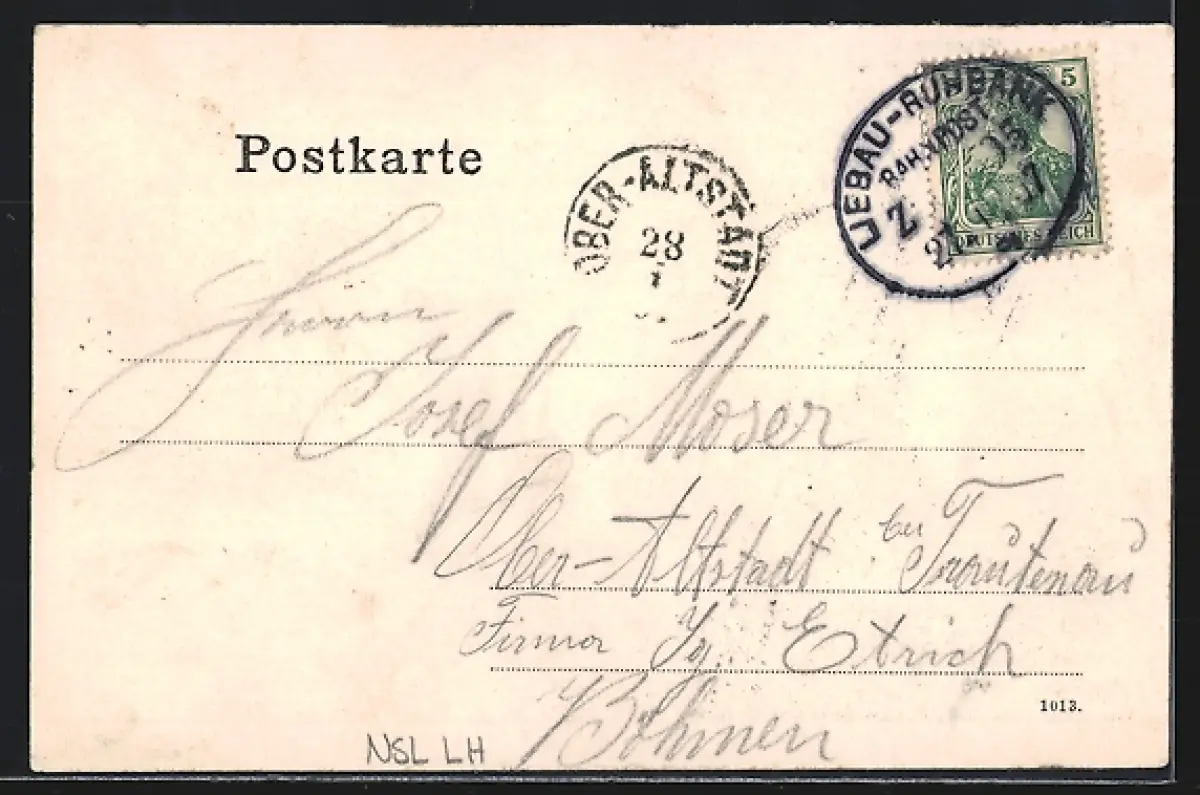 Postkarte
OBER-ALTSTADT
28
LIEBAU-RUHBANK
BAHNPOST
Z
5
DEUTSCHES REICH
Herrn
Josef Moser
Ober-Altstadt bei Trautenau
Firma Ig. Etrich
Böhmen
1013.
NSL LH